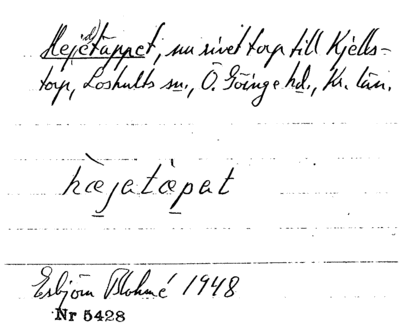 Heje(d)täppet, nu rivet torp till Kjells-
torp, Loshults sn., Ö. Göinge hd., Kr. län.
hæjatæpat
Esbjörn Blohmé 1948
Nr 5428